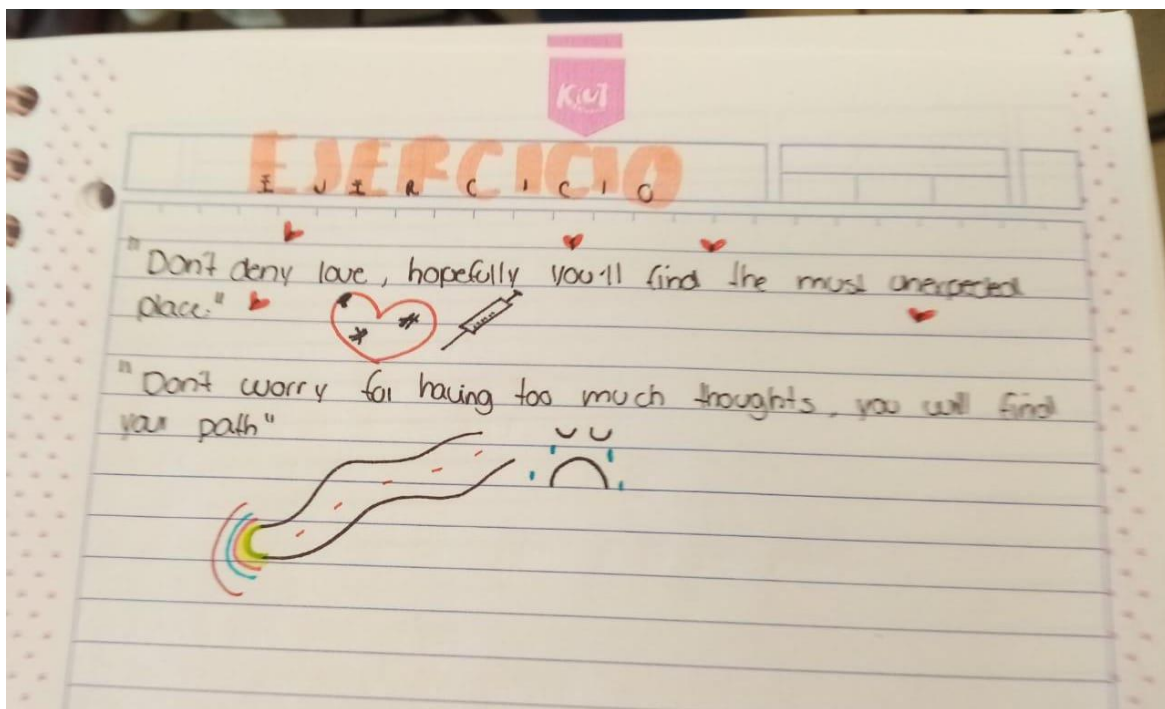 Kiut
EJERCICIO
EJERCICIO
"Don't deny love, hopefully you'll find the most unexpected
place."
"Don't worry for having too much thoughts, you will find
your path"